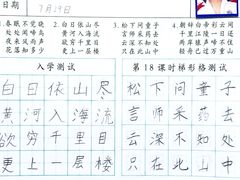 日期 7月19日
1.春眠不觉晓
处处闻啼鸟
夜来风雨声
花落知多少
2.白日依山尽
黄河入海流
欲穷千里目
更上一层楼
3.松下问童子
言师采药去
云深不知处
只在此山中
4.朝辞白帝彩云间
千里江陵一日还
两岸猿声啼不住
轻舟已过万重山
入学测试
白日依山尽
黄河入海流
欲穷千里目
更上一层楼
第18课时梯形格测试
松下问童子
言师采药去
云深不知处
只在此山中